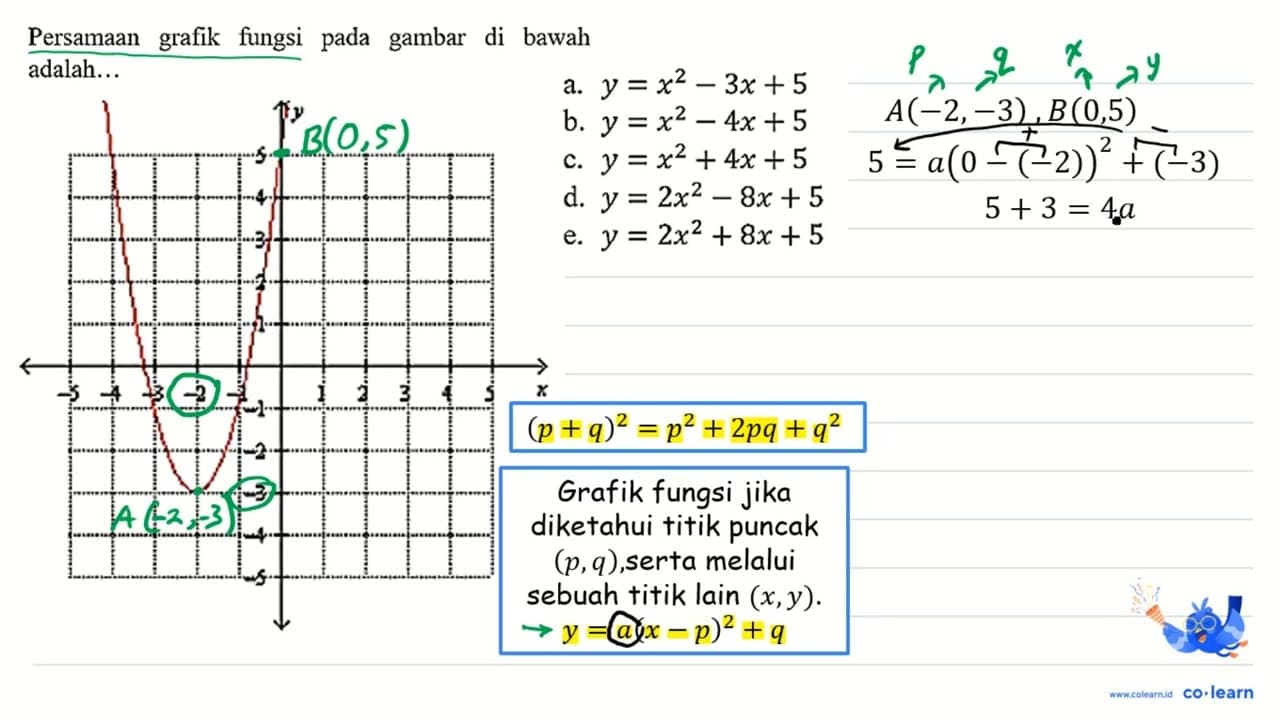 Persamaan grafik fungsi pada gambar di bawah
adalah...
a. y = x² − 3x + 5
b. y = x² − 4x + 5
c. y = x² + 4x + 5
d. y = 2x² − 8x + 5
e. y = 2x² + 8x + 5
p q x y
A(−2, −3), B(0,5)
+ −
5 = a(0 − (−2))² + (−3)
5 + 3 = 4a
y
B(0,5)
5
4
3
2
1
−5 −4 −3 −2 −1 1 2 3 4 5 x
−1
−2
−3
A(−2,−3)
−4
−5
(p + q)² = p² + 2pq + q²
Grafik fungsi jika
diketahui titik puncak
(p, q),serta melalui
sebuah titik lain (x, y).
→ y = a(x − p)² + q
www.colearn.id co·learn